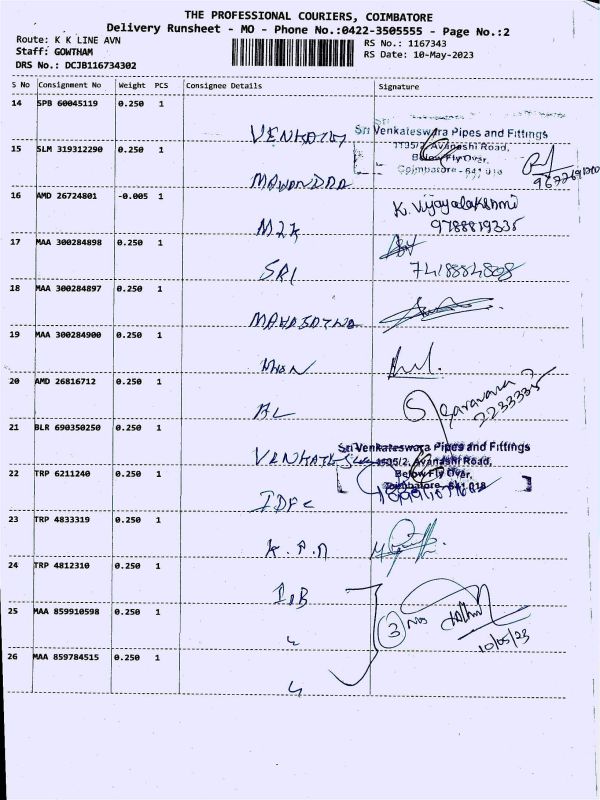 THE PROFESSIONAL COURIERS, COIMBATORE
Delivery Runsheet - MO - Phone No.:0422-3505555 - Page No.:2
Route: K K LINE AVN
RS No.: 1167343
Staff: GOWTHAM
RS Date: 10-May-2023
DRS No.: DCJB116734302
S No Consignment No Weight PCS Consignee Details Signature
14 SPB 60045119 0.250 1
VENKATES
Sri Venkateswara Pipes and Fittings
15 SLM 319312290 0.250 1
1195/2, Avanashi Road,
Below Fly Over,
Coimbatore - 641 018
16 AMD 26724801 -0.005 1
K. Vijayalakshmi
9788819335
17 MAA 300284898 0.250 1
SRI
7418884808
18 MAA 300284897 0.250 1
19 MAA 300284900 0.250 1
20 AMD 26816712 0.250 1
AL
Saravana
2233335
21 BLR 690350250 0.250 1
VENKATES
Sri Venkateswara Pipes and Fittings
Avanashi Road,
Below Fly Over,
Coimbatore - 641 018
22 TRP 6211240 0.250 1
IDFC
23 TRP 4833319 0.250 1
K.A.N
24 TRP 4812310 0.250 1
IOB
25 MAA 859910598 0.250 1
3 Nos
10/05/23
26 MAA 859784515 0.250 1